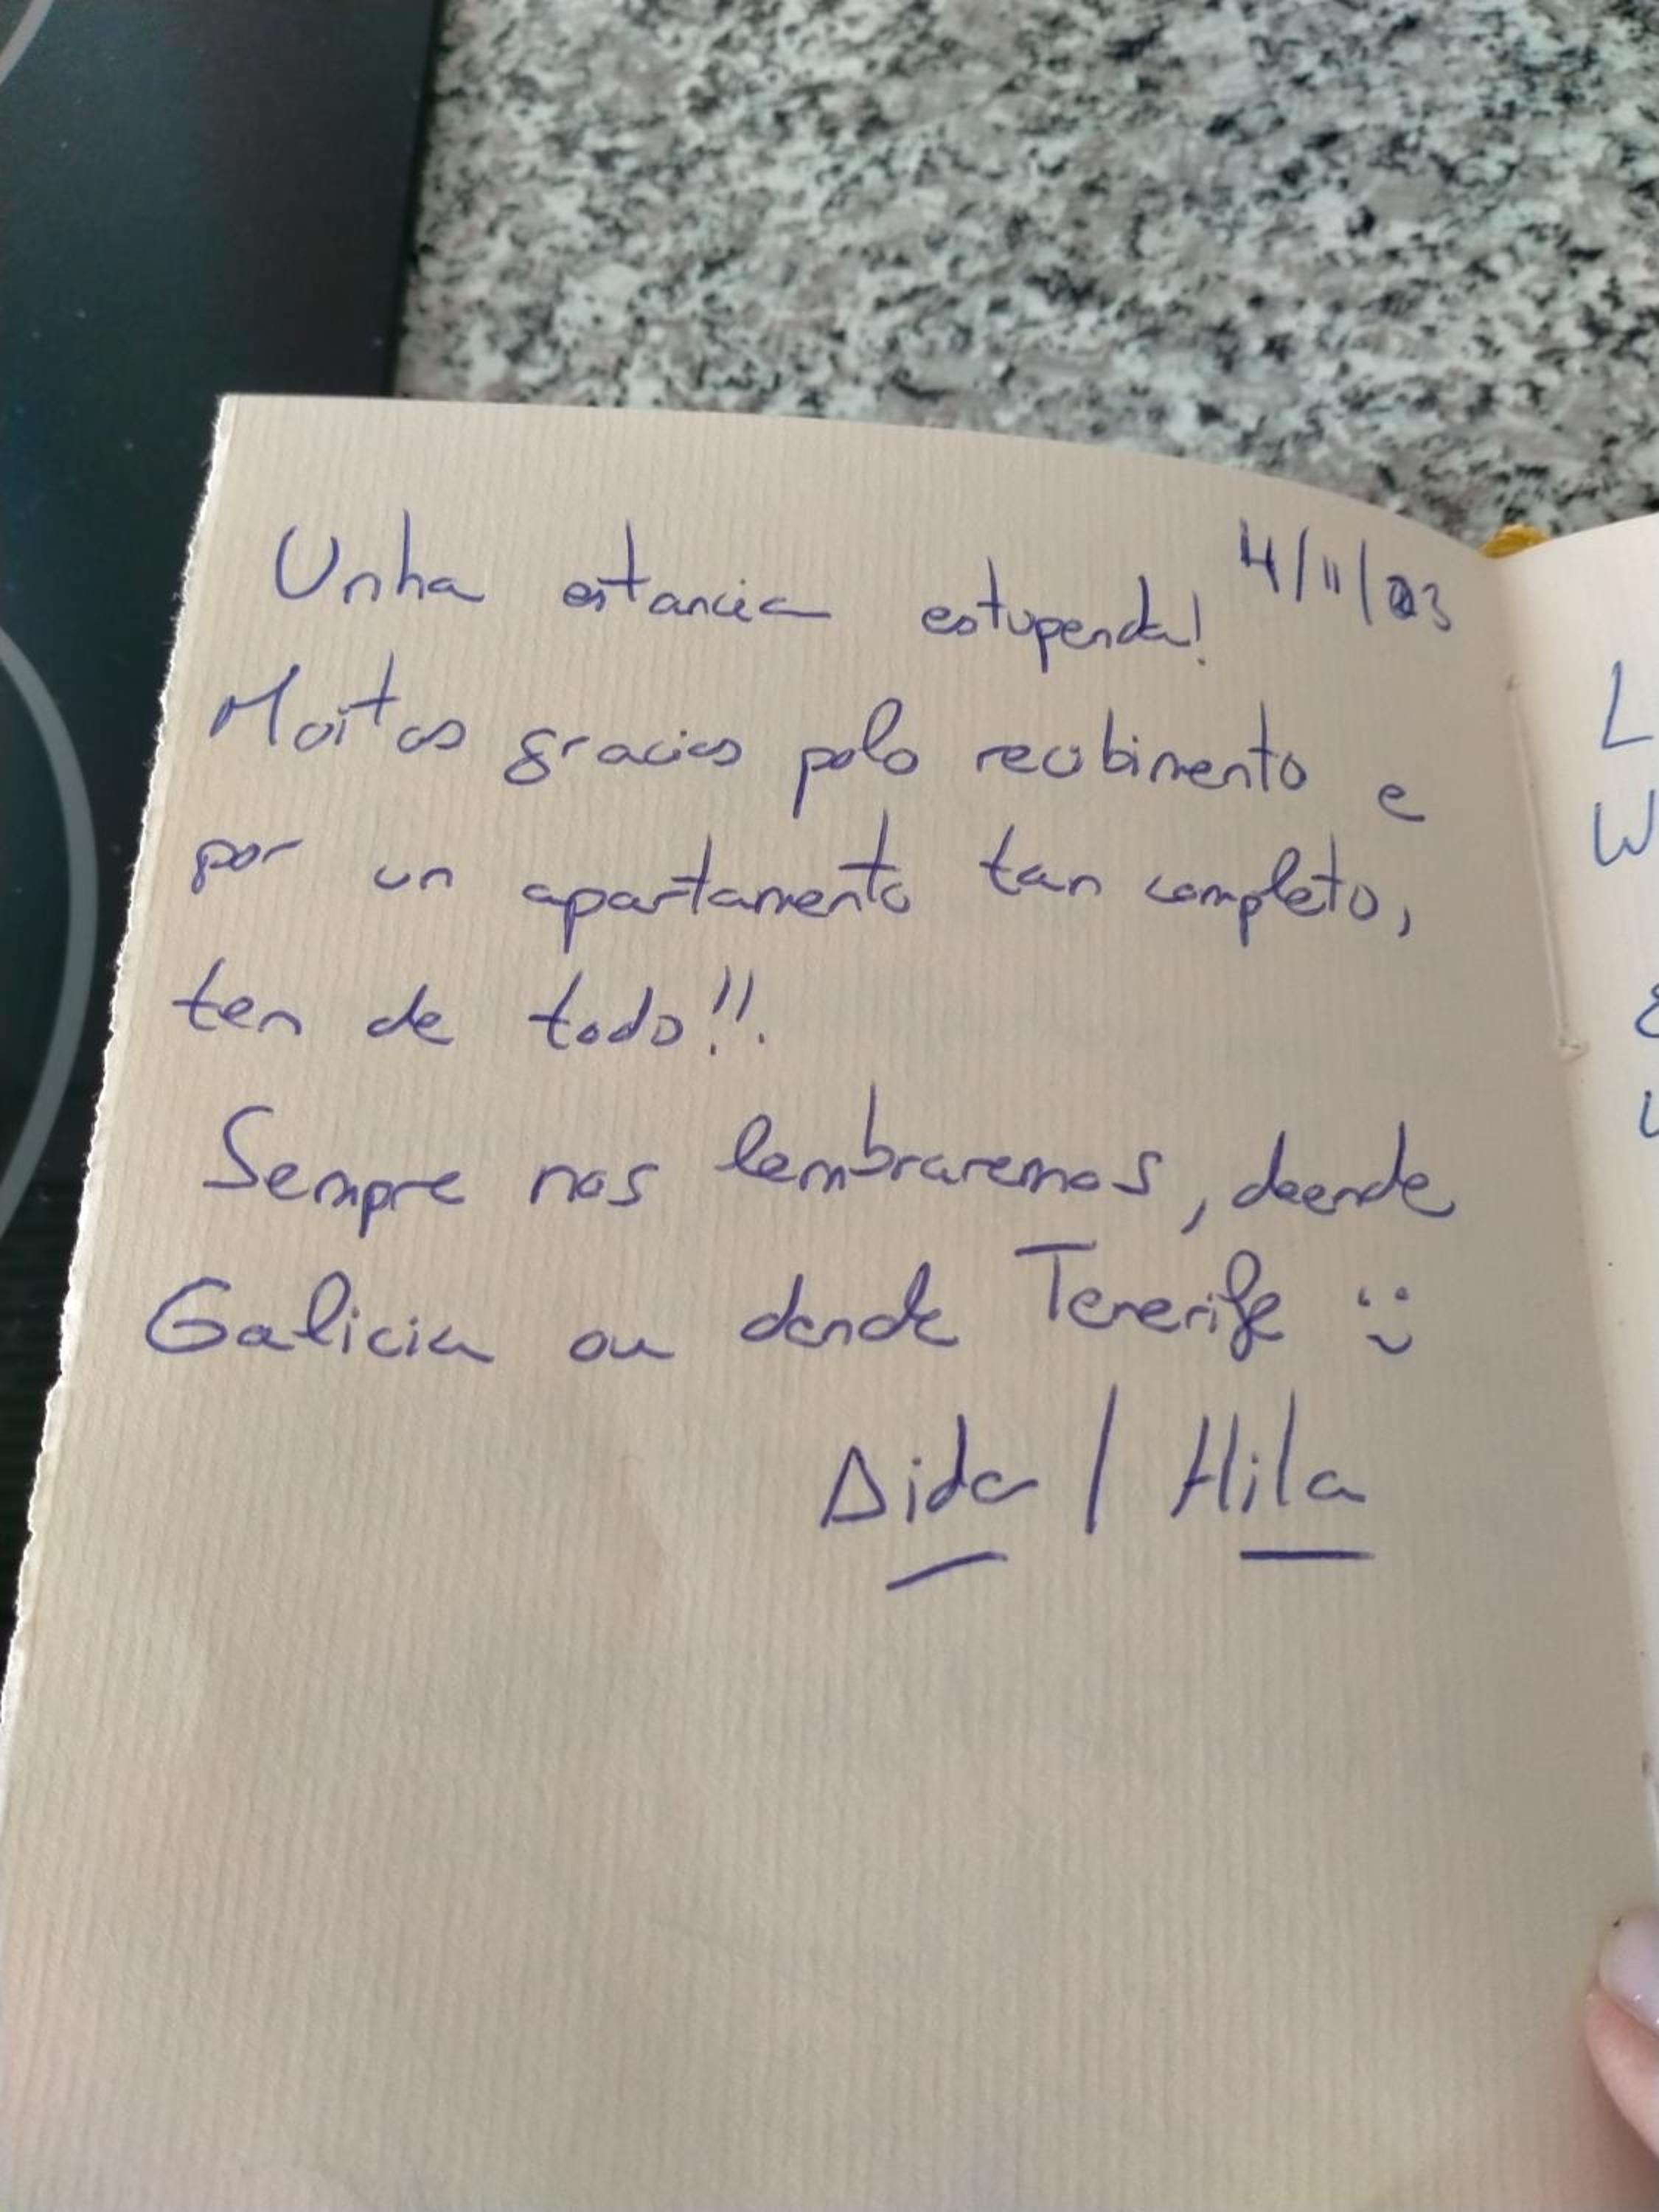 Unha estancia estupenda! 4/11/23
Moitas gracias polo recibimento e
por un apartamento tan completo,
ten de todo!!.
Sempre nos lembraremos, dende
Galicia ou dende Tenerife :)
Aida / Hila
L
W